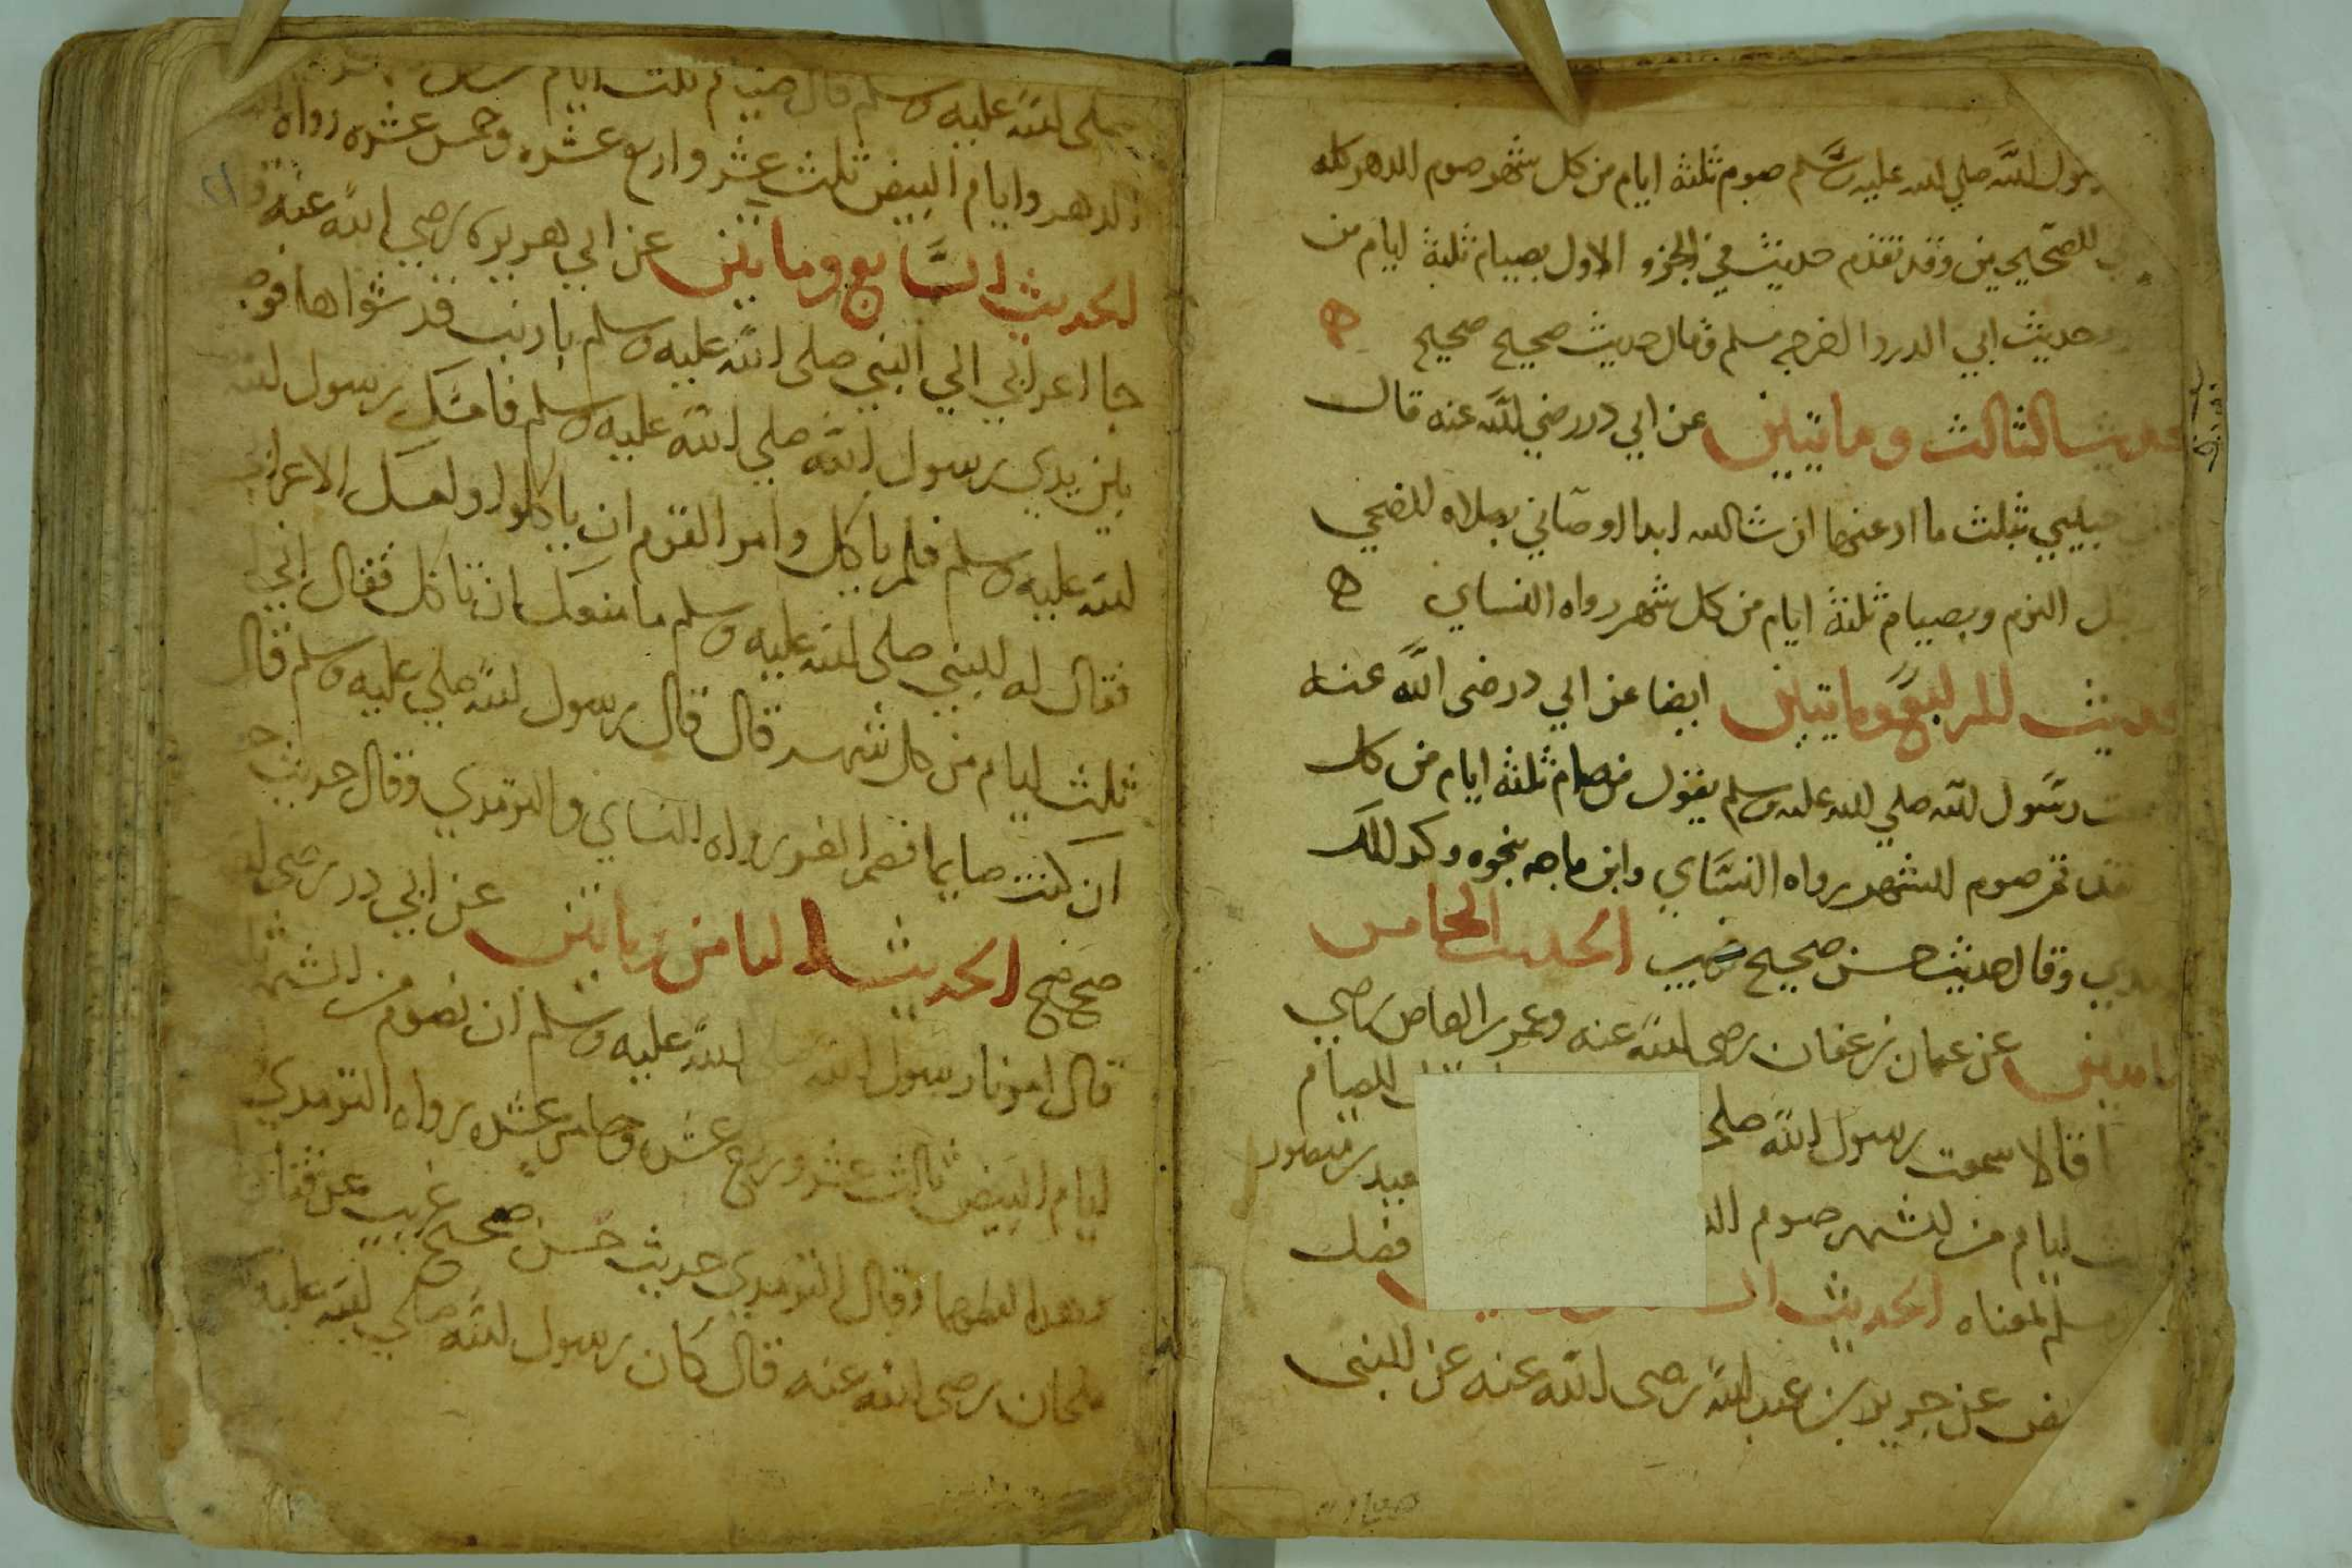 رسول الله صلى الله عليه وسلم صوم ثلثة ايام من كل شهر صوم الدهر كله
للصحيحين وقد تقدم حديث في الجزو الاول بصيام ثلثة ايام من
حديث ابي الدرداء اخرجه مسلم وقال حديث صحيح صحيح
الحديث الثالث وماتيين عن ابي در رضي الله عنه قال
حبيبي بثلث ما ادعنهما ان شا الله ابدا اوصاني بصلاه الضحي
قبل النوم وبصيام ثلثة ايام من كل شهر رواه النساي
الحديث الرابع وماتيين ايضا عن ابي در رضى الله عنه
رسول الله صلي الله عليه وسلم يقول من صام ثلثة ايام من كل
فقد تم صوم الشهر رواه النساي وابن ماجه بنحوه وكدلك
وقال حديث حسن صحيح الحديث الخامس
وماتين عن عمان بن عفان رضى الله عنه وعمر العاص رضي
قالا سمعت رسول الله صلى الصيام
ايام من الشهر صوم بن منصور
مسلم بمعناه الحديث فضل
عن جرير بن عبد الله رضى الله عنه عن النبى
صلى الله عليه وسلم قال صيام ثلث ايام
الدهر وايام البيض ثلث عشر واربع عشره وخمس عشره رواه
الحديث السابع وماتين عن ابي هريره رضي الله عنه
جا اعرابي الي النبي صلى الله عليه وسلم بارنب قد شواها فوضـ
بين يدي رسول الله صلي الله عليه وسلم فامسك رسول الله
الله عليه وسلم فلم ياكل وامر القوم ان ياكلوا وامسك الاعرابي
فقال له النبي صلى الله عليه وسلم ما منعك ان تاكل فقال اني
ثلث ايام من كل شهر قال قال رسول الله صلي عليه وسلم قال
ان كنت صايما فصم الغر رواه النساي والترمدي وقال حديث
صحيح الحديث الثامن وماتين عن ابي در رضى الله
قال امرنا رسول الله صلى الله عليه وسلم ان نصوم من الشهر
ايام البيض ثالث عشر وربع عشره وخامس عشره رواه الترمدي
وقال الترمدي حديث حسن صحيح غريب عن
ملحان رضى الله عنه قال كان رسول الله صلي الله عليه